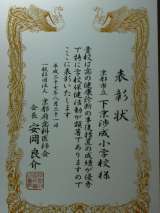 表彰状
京都市立
下京渉成小学校様
貴校は歯の健康診断の事後措置の成績が優秀
で特に学校保健活動が顕著でありますので
ここに表彰いたします
平成二十七年八月二十一日
一般社団法人 京都府歯科医師会
会長 安岡良介